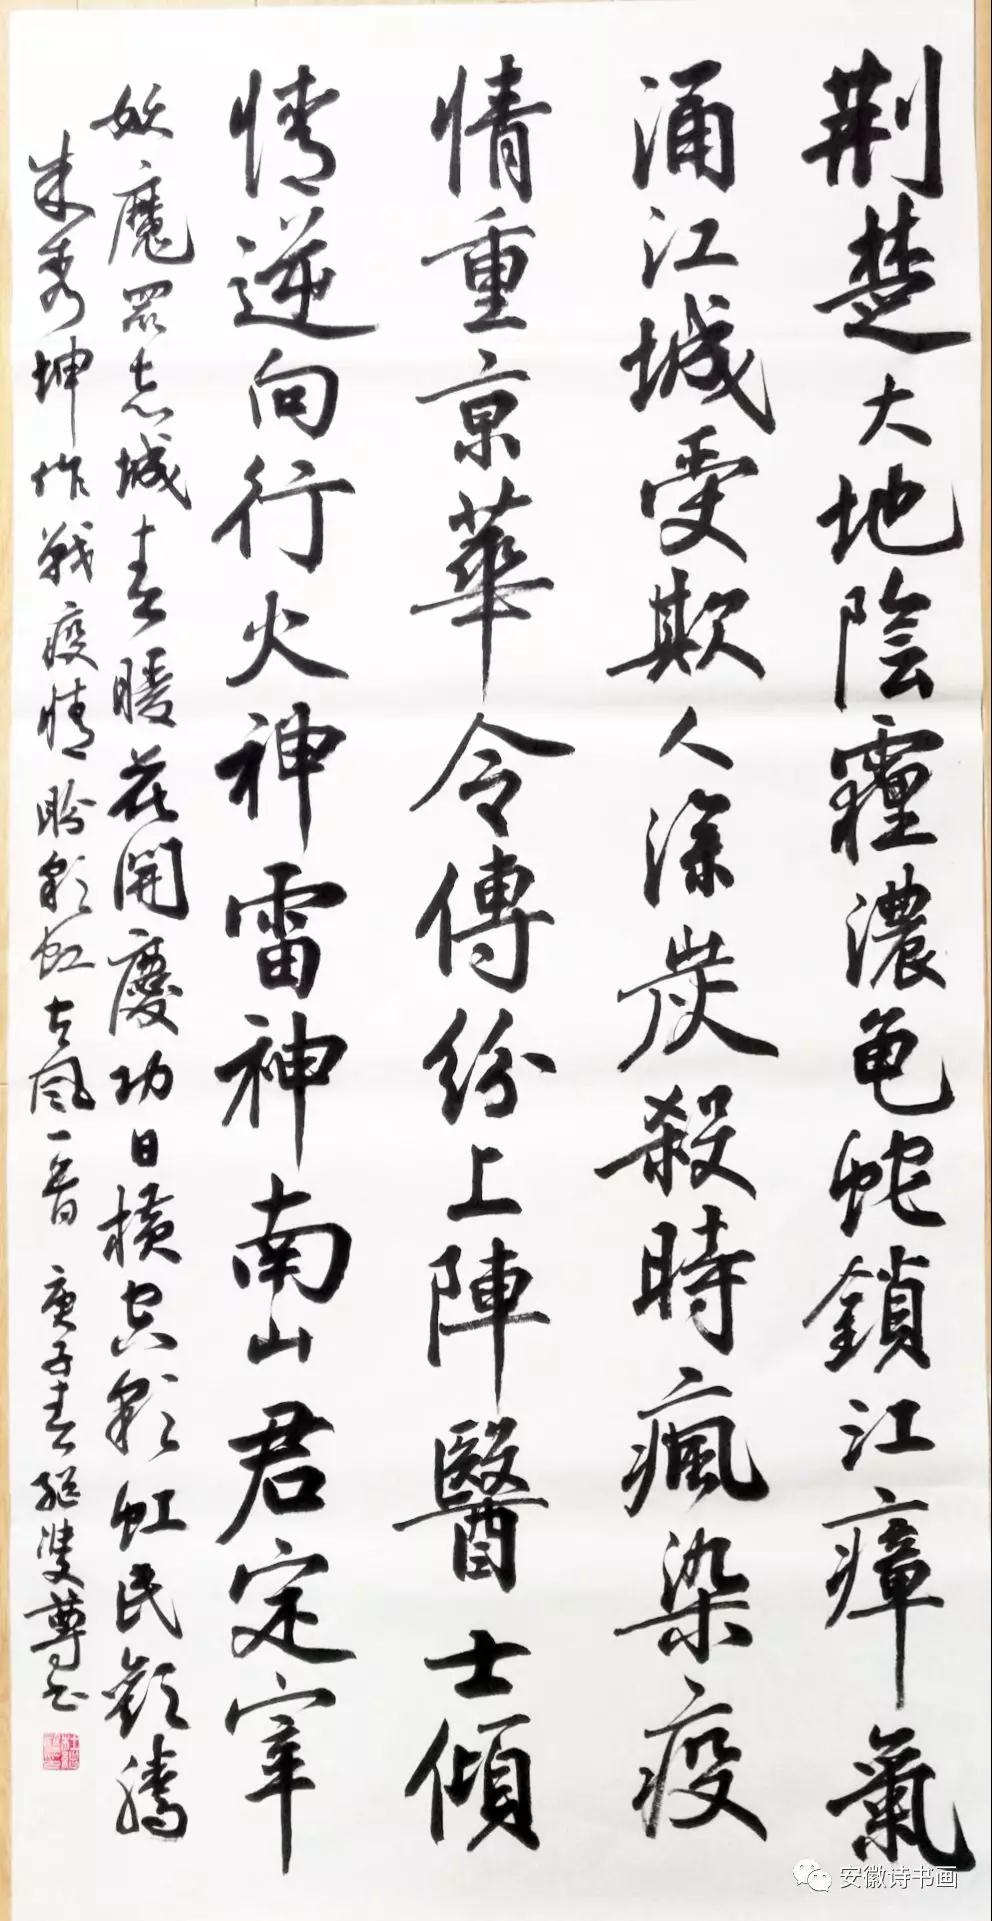 荆楚大地陰霾濃龟蛇鎖江瘴氣
涌江城受欺人深炭殺時瘋染疫
情重京華令傳纷上陣醫士傾
情逆向行火神雷神南山君定宰
妖魔眾志城春暖花開慶功日横空彩虹民歡腾
朱秀坤作戰疫情盼彩虹古風一首 庚子春 继 尊书
安徽诗书画